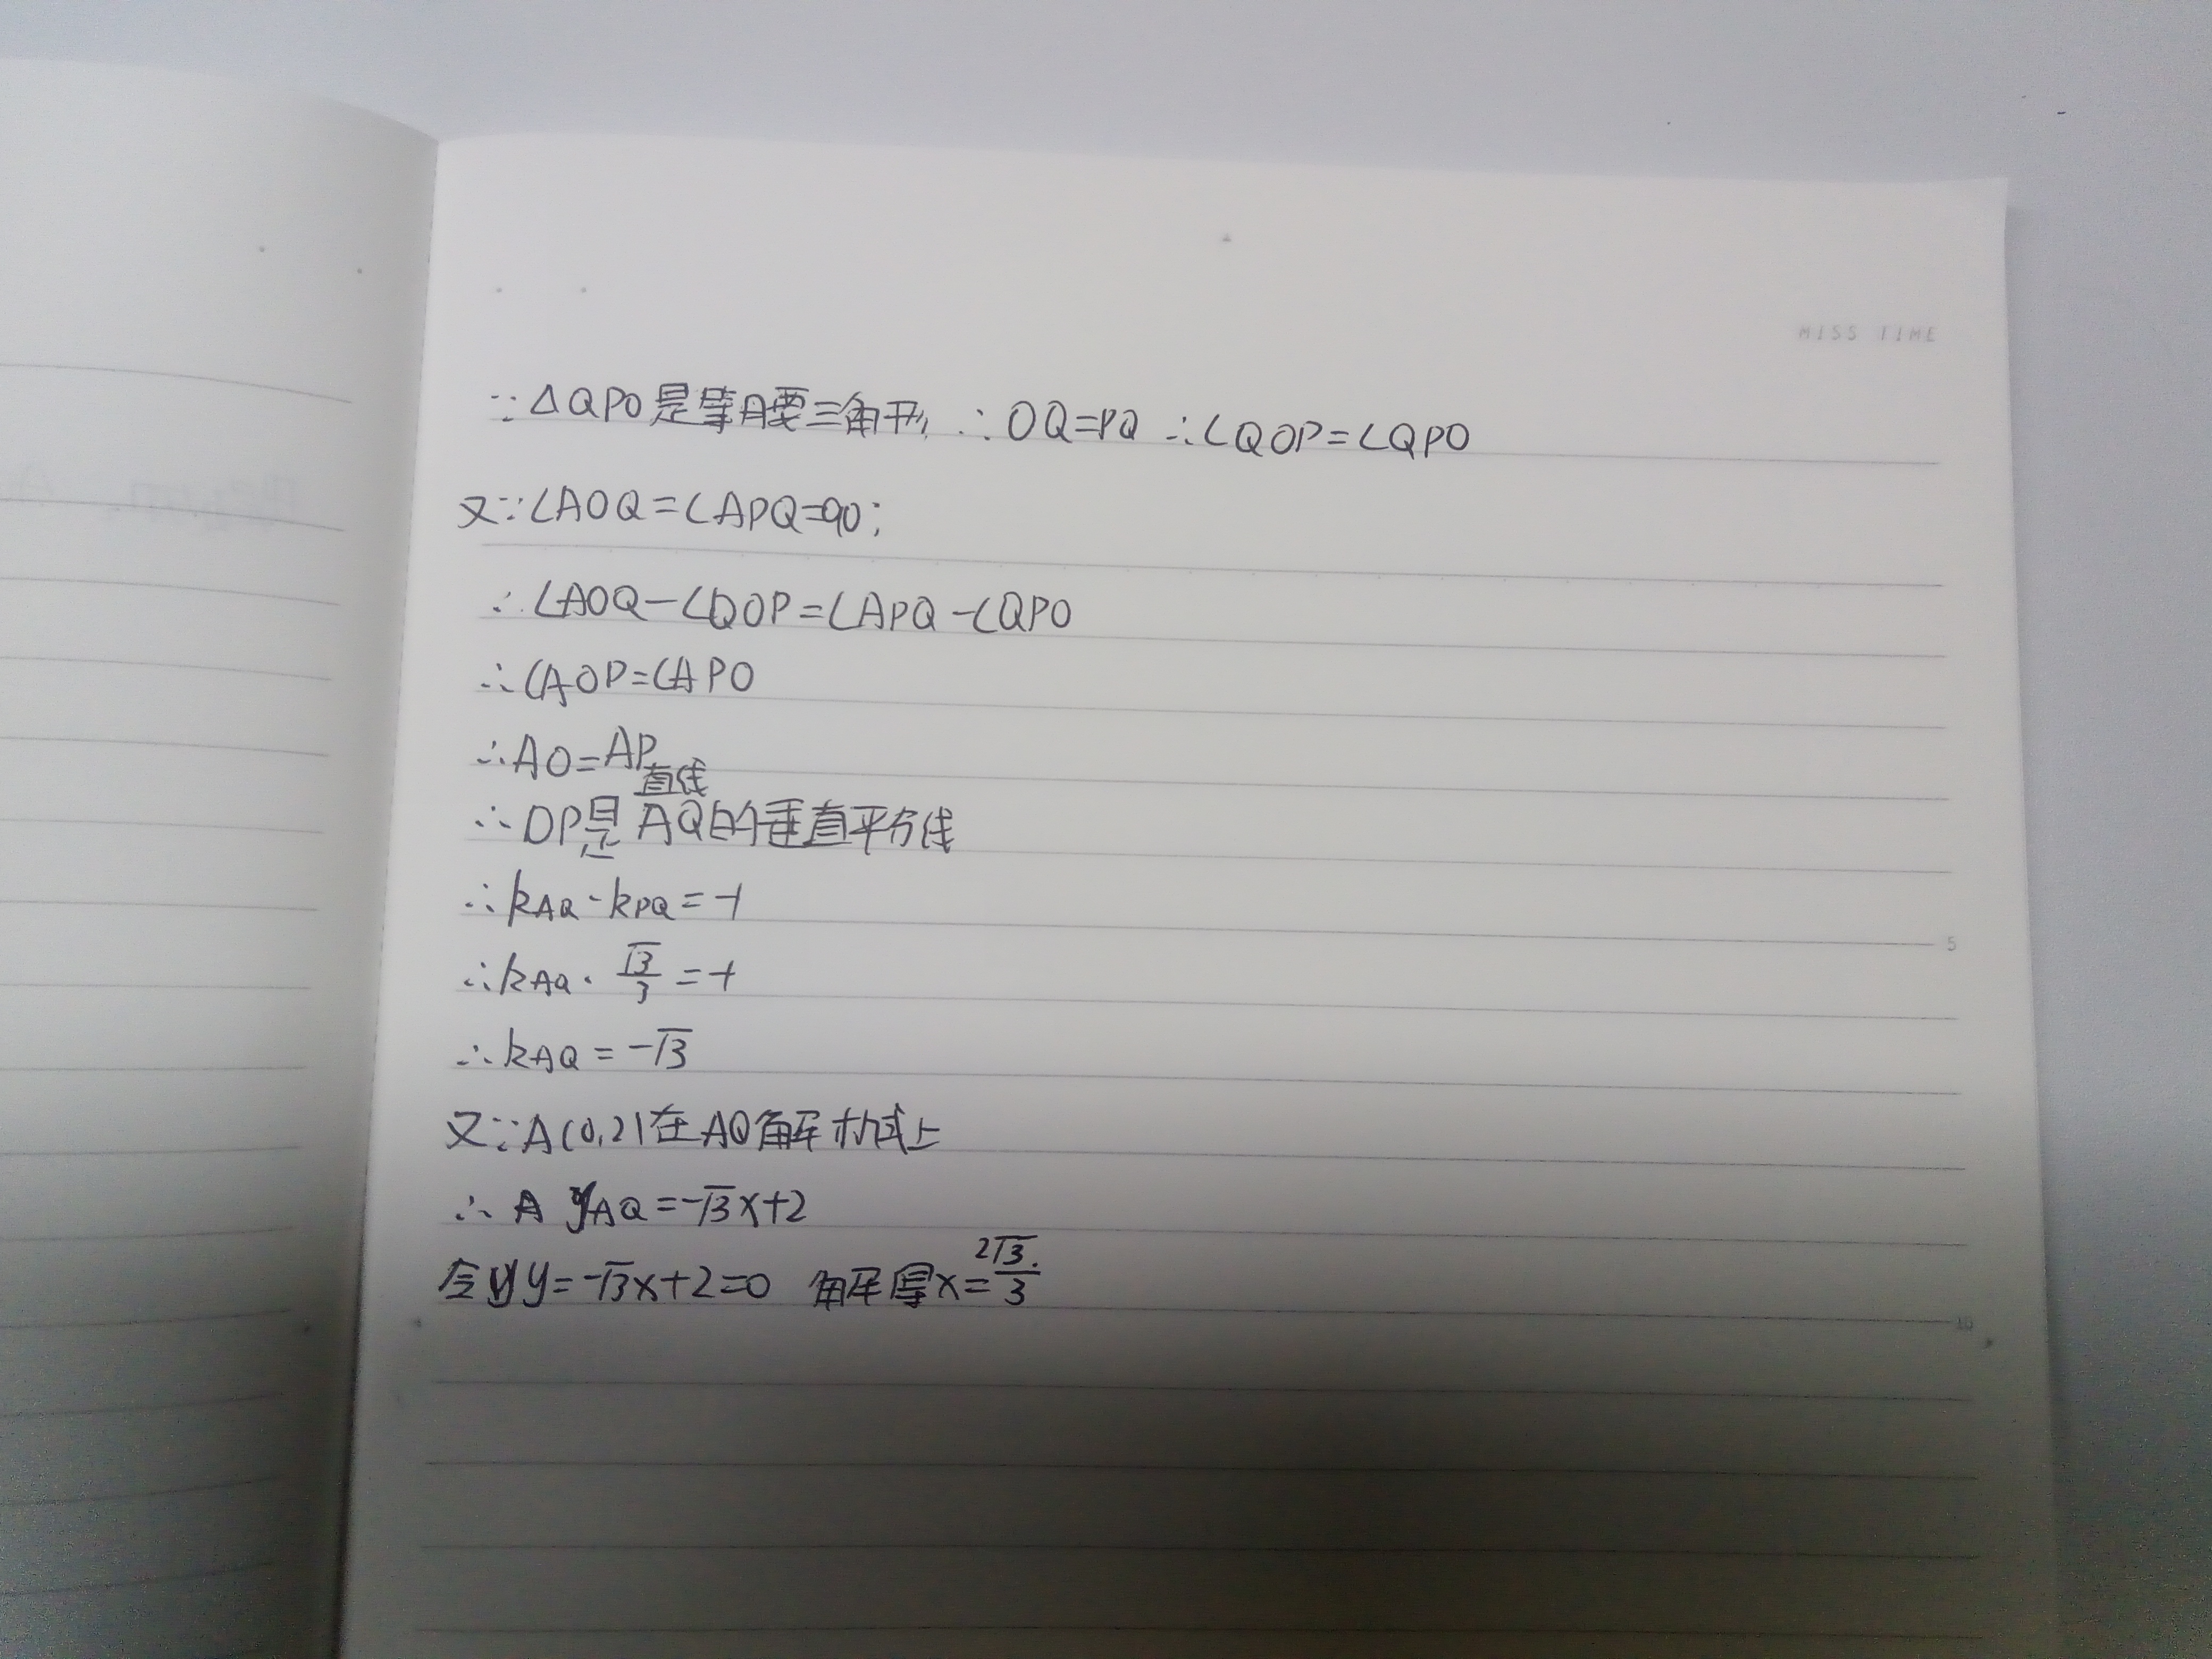 MISS TIME
∵△QPO是等腰三角形 ∴OQ=PQ ∴∠QOP=∠QPO
又∵∠AOQ=∠APQ=90°
∴∠AOQ-∠QOP=∠APQ-∠QPO
∴∠AOP=∠APO
∴AO=AP
直线
∴OP是AQ的垂直平分线
∴kAQ·kPQ=-1
∴kAQ·√3/3=-1
∴kAQ=-√3
5
又∵A(0,2)在AQ解析式上
∴A yAQ=-√3x+2
令y y=-√3x+2=0 解得x=2√3/3
10